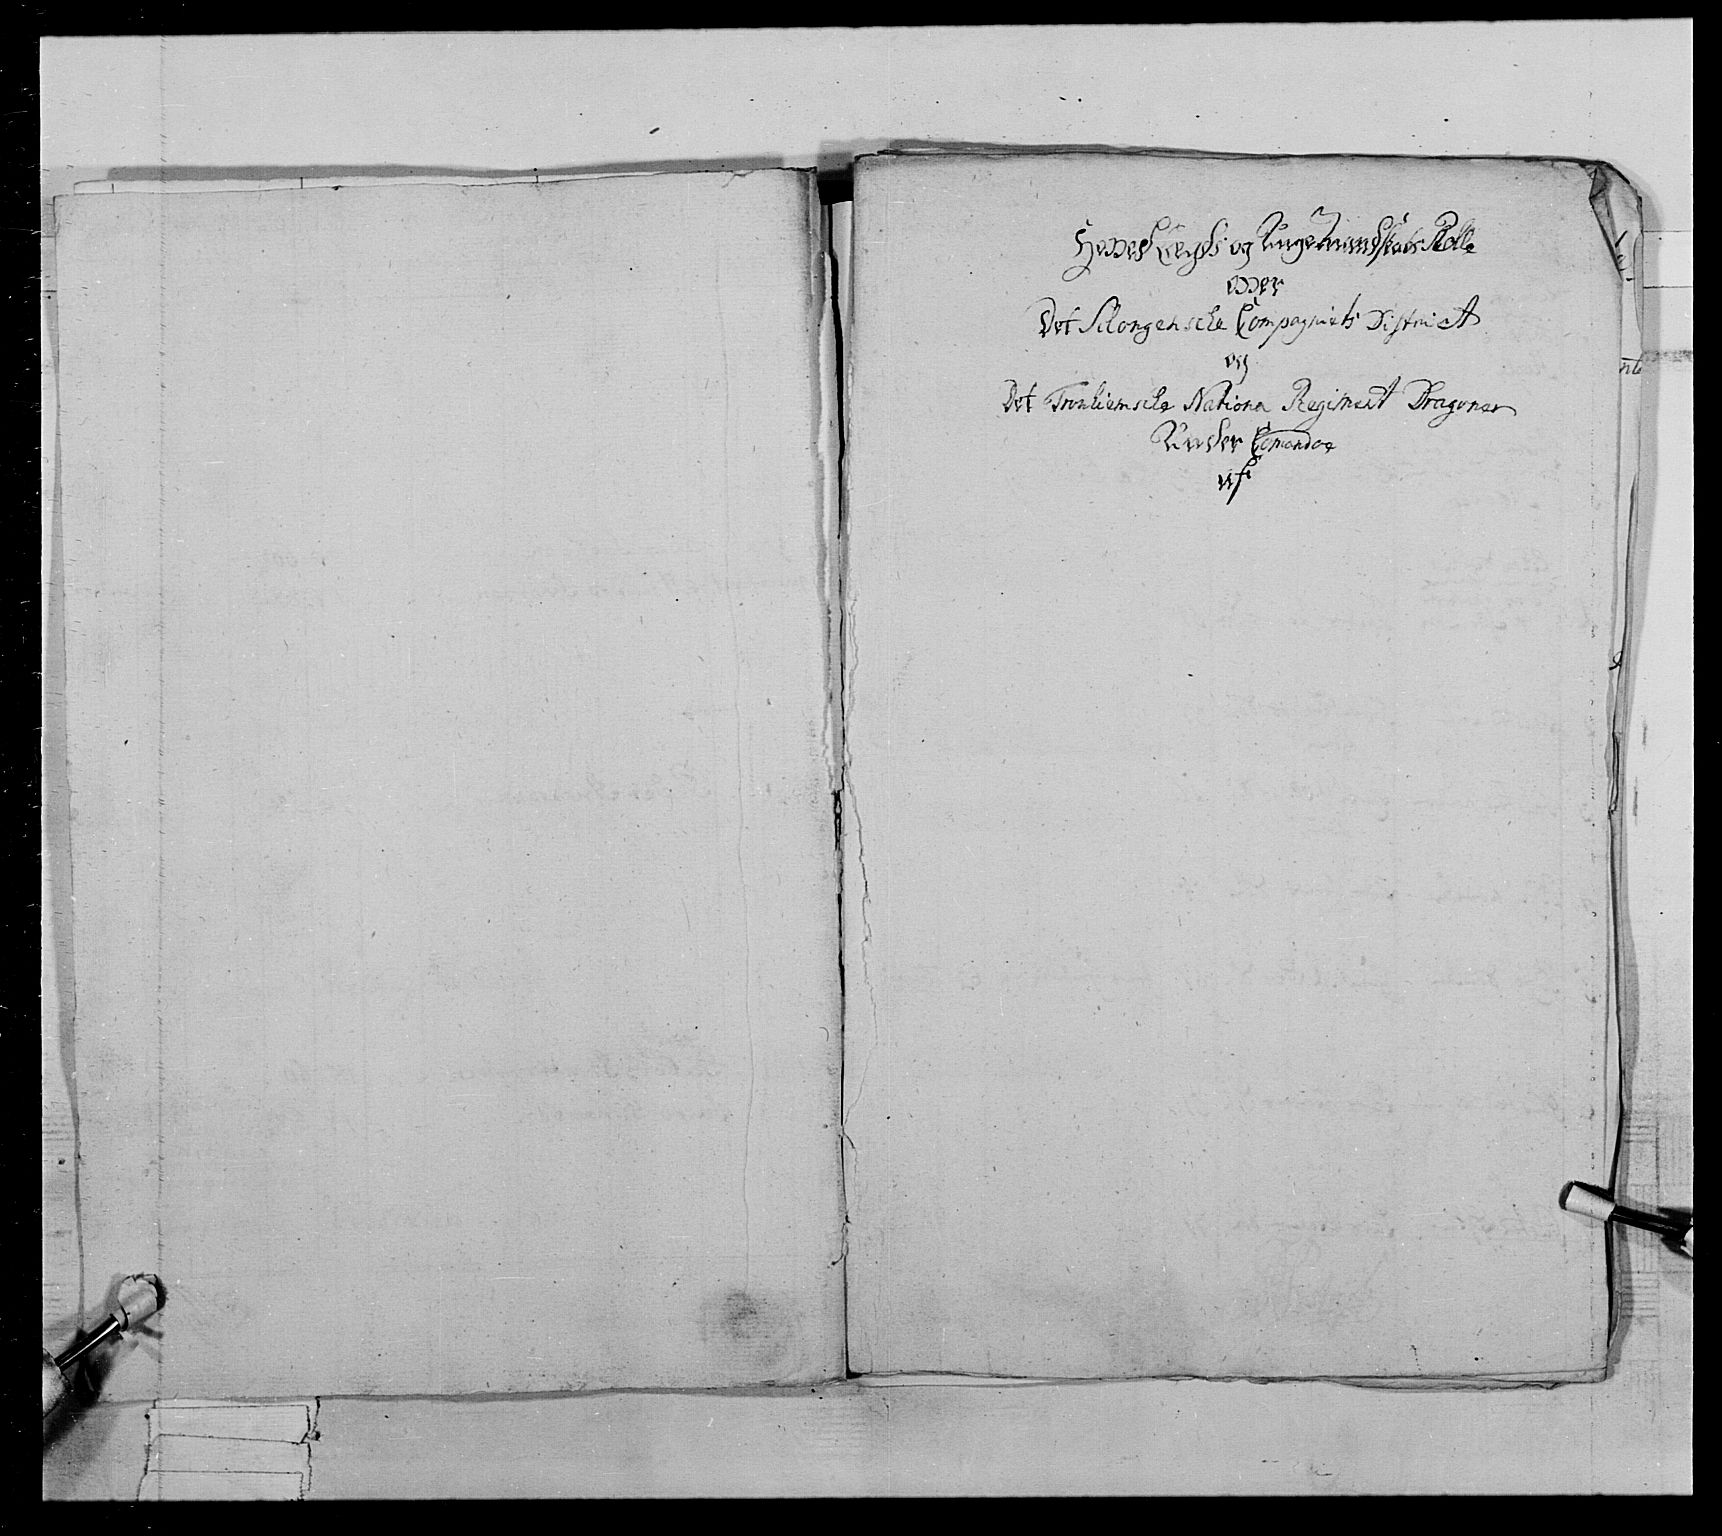 Hoved Lægds og Unge Mandskabs Rolle
over
Det Schongenske Compagniets District
og
Det Tronhiemske Nationa Regiment Dragoner
Under Comandoe
af